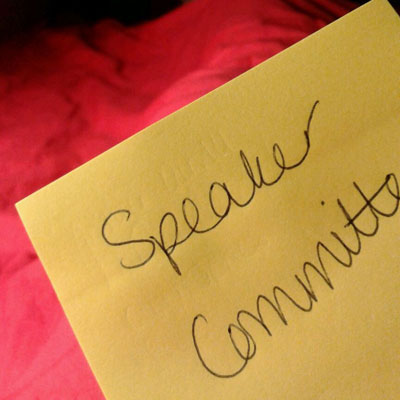 Speaker
Committe